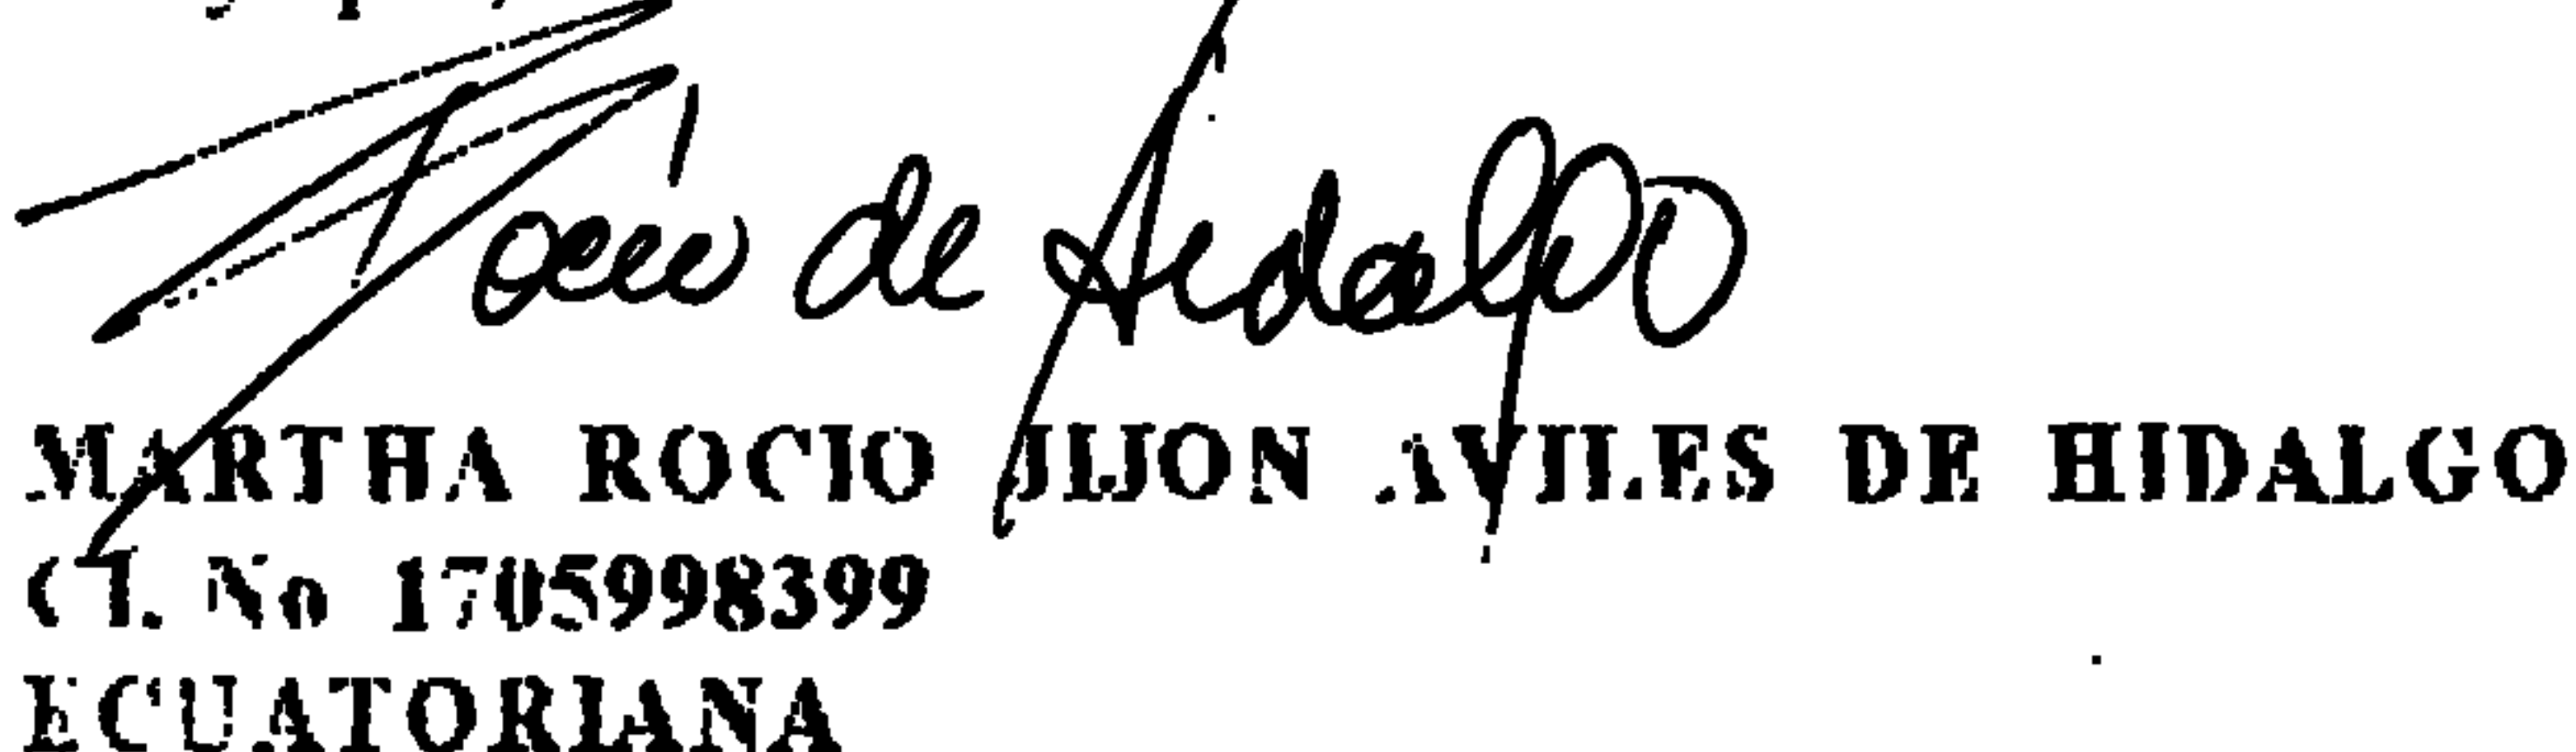 Rocío de Hidalgo
MARTHA ROCIO JIJON AVILES DE HIDALGO
CI. No 1705998399
ECUATORIANA